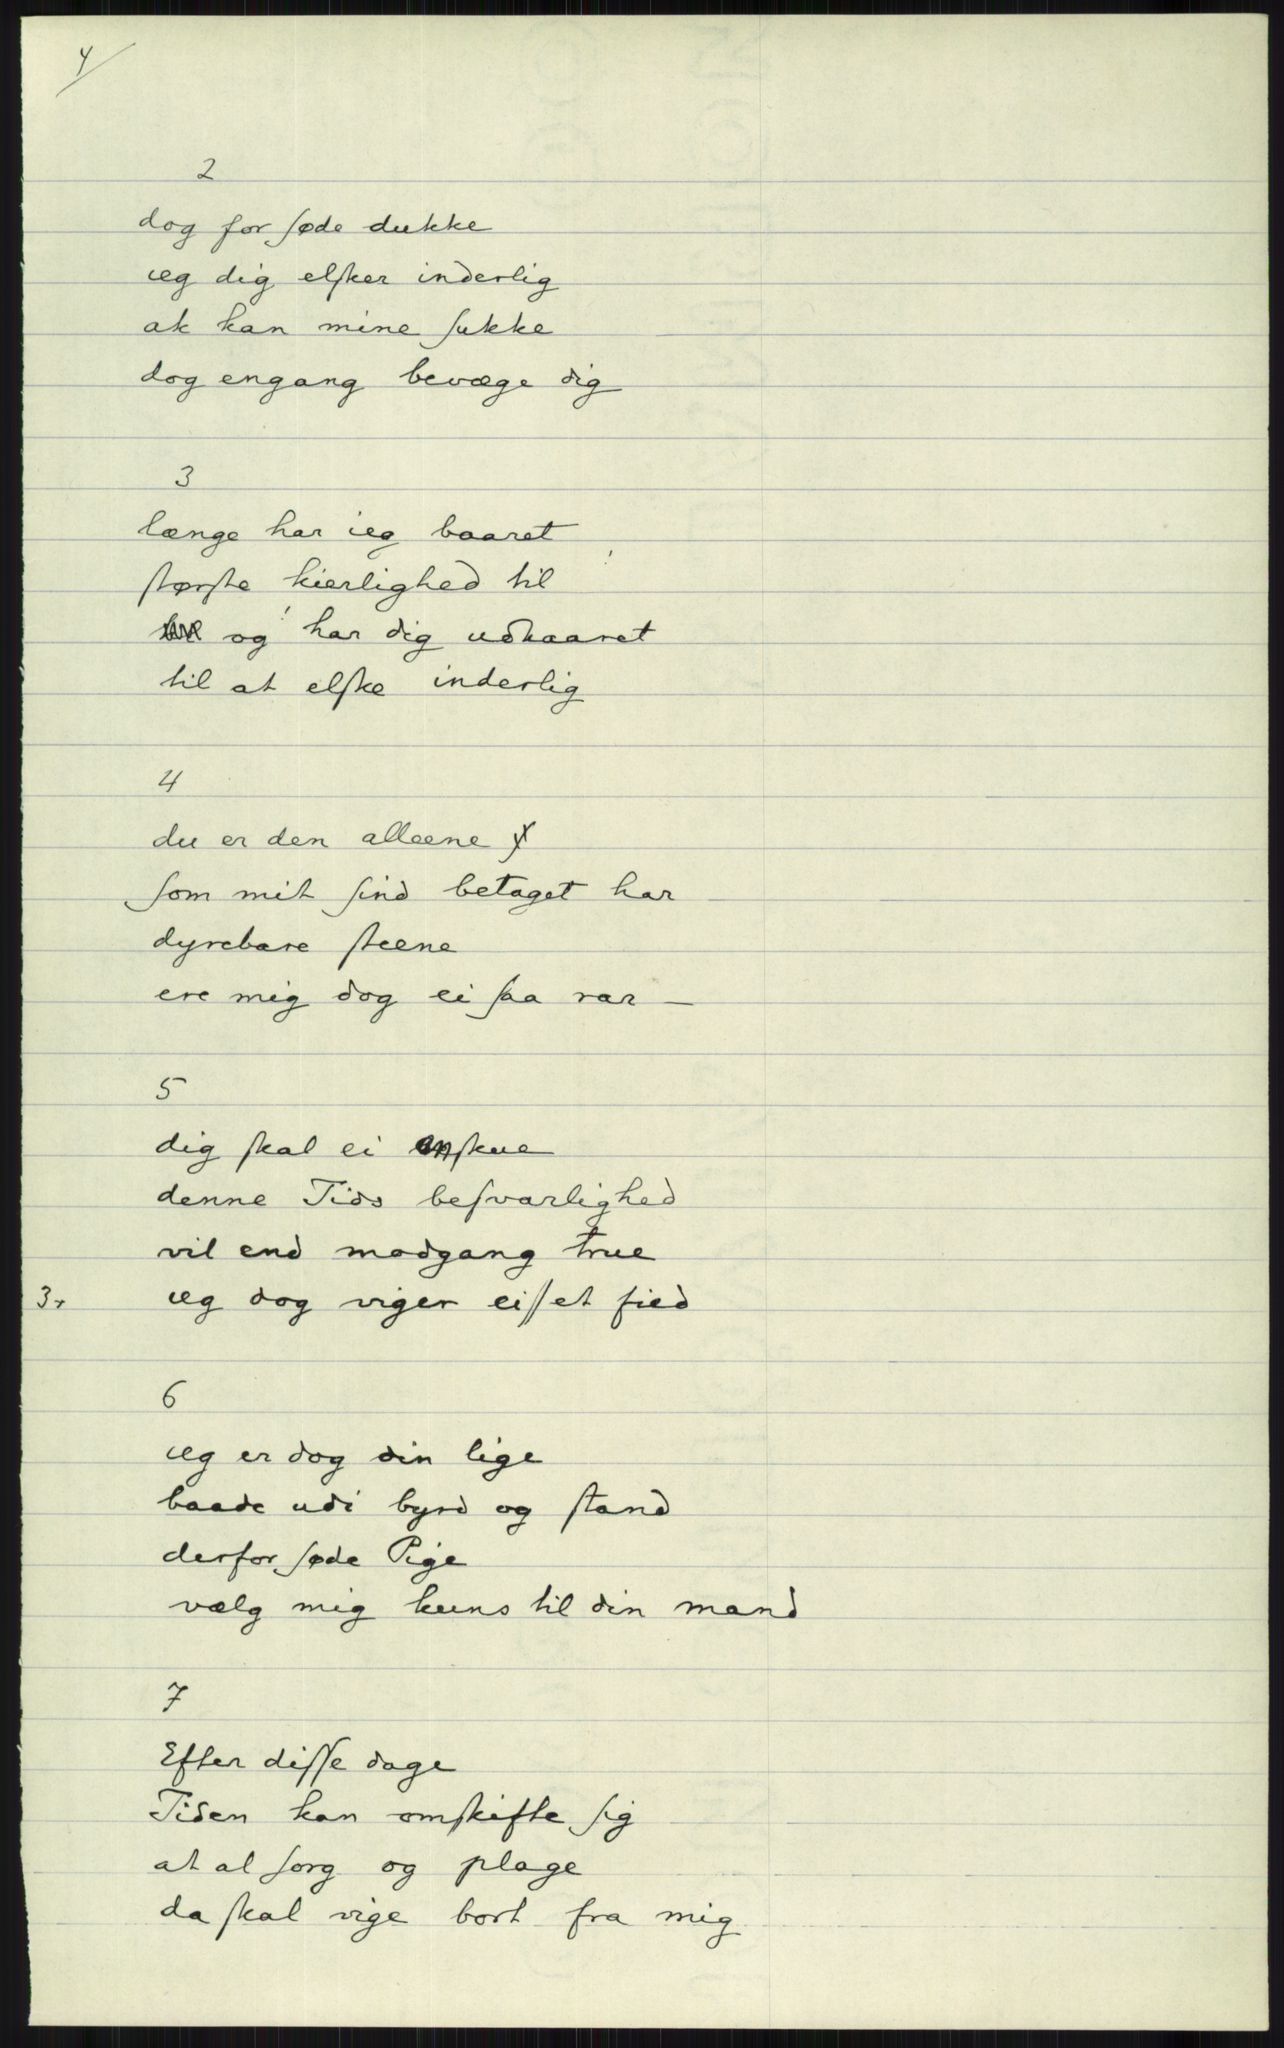 4/
2
dog for søde dukke
ieg dig elsker inderlig
ak kan mine sukke
dog engang bevæge dig
3
længe har ieg baaret
største kierlighed til
og! har dig udkaaret
til at elske inderlig
4
du er den alleene
som mit sind betaget har
dyrebare steene
ere mig dog ei saa rar —
5
dig skal ei anskue
denne Tids besvarlighed
vil end modgang true
3r ieg dog viger ei//et fied
6
ieg er dog din lige
baade udi byrd og stand
derfor søde Pige
vælg mig kuns til din mand
7
Efter disse dage
Tiden kan omskifte sig
at al sorg og plage
da skal vige bort fra mig